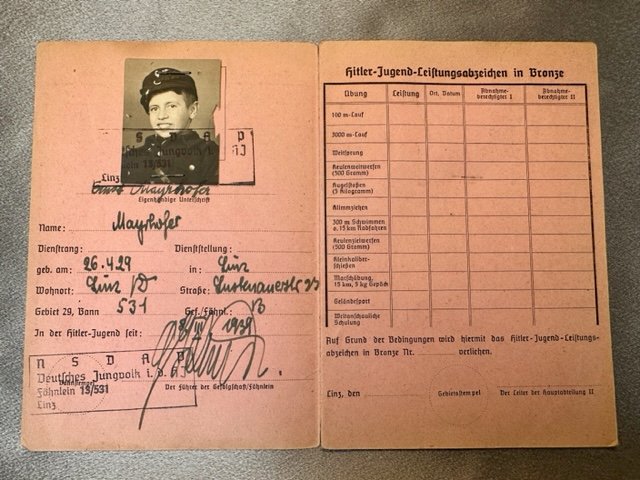 N S D A P
Deutsches Jungvolk i. d. HJ
Fähnlein 13/531
Linz
Ernst Mayrhofer
Eigenhändige Unterschrift
Name: Mayrhofer
Dienstrang: Dienststellung:
geb. am: 26.4.29 in: Linz
Wohnort: Linz Straße:
Gebiet 29, Bann 531 Gef./Fähnl.: 13
In der Hitler-Jugend seit: 1939
N S D A P
Deutsches Jungvolk i. d. HJ
Dienststempel
Fähnlein 13/531
Linz
Der Führer der Gefolgschaft/Fähnlein
Hitler-Jugend-Leistungsabzeichen in Bronze
Übung Leistung Ort, Datum Abnahme-berechtigter I Abnahme-berechtigter II
100 m-Lauf
3000 m-Lauf
Weitsprung
Keulenweitwerfen
(500 Gramm)
Kugelstoßen
(5 Kilogramm)
Klimmziehen
300 m Schwimmen
o. 15 km Radfahren
Keulenzielwerfen
(500 Gramm)
Kleinkaliber-
schießen
Marschübung,
15 km, 5 kg Gepäck
Geländesport
Weltanschauliche
Schulung
Auf Grund der Bedingungen wird hiermit das Hitler-Jugend-Leistungs-
abzeichen in Bronze Nr. verliehen.
Linz, den Gebietsstempel Der Leiter der Hauptabteilung II